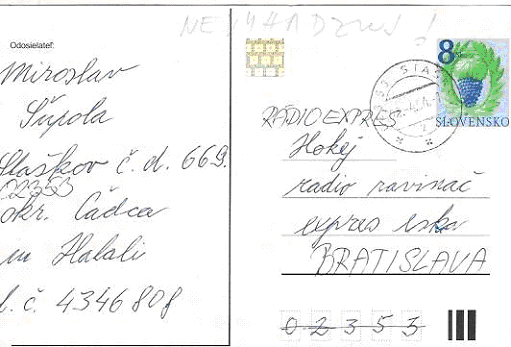 NEVYHADZUJ!
Odosielateľ:
Miroslav
Šupola
Staškov č.d. 669.
02353
okr. Čadca
m Halali
t.č. 4346808
8
SLOVENSKO
RÁDIO EXPRES
Hokej
radio ravinač
expres eska
BRATISLAVA
02353